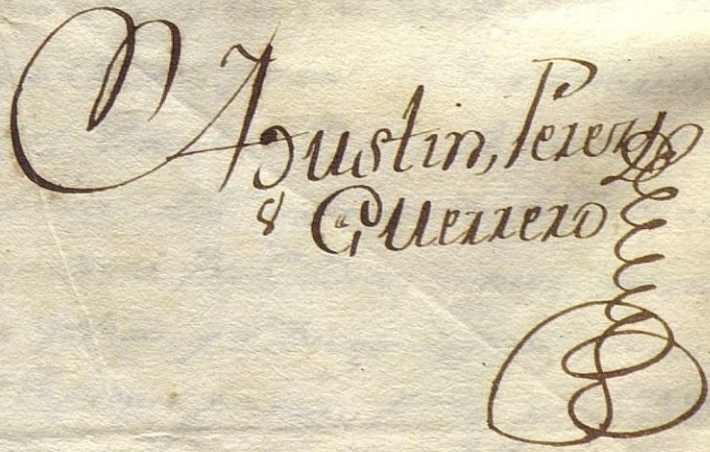 Agustin, Perez
y Guerrero